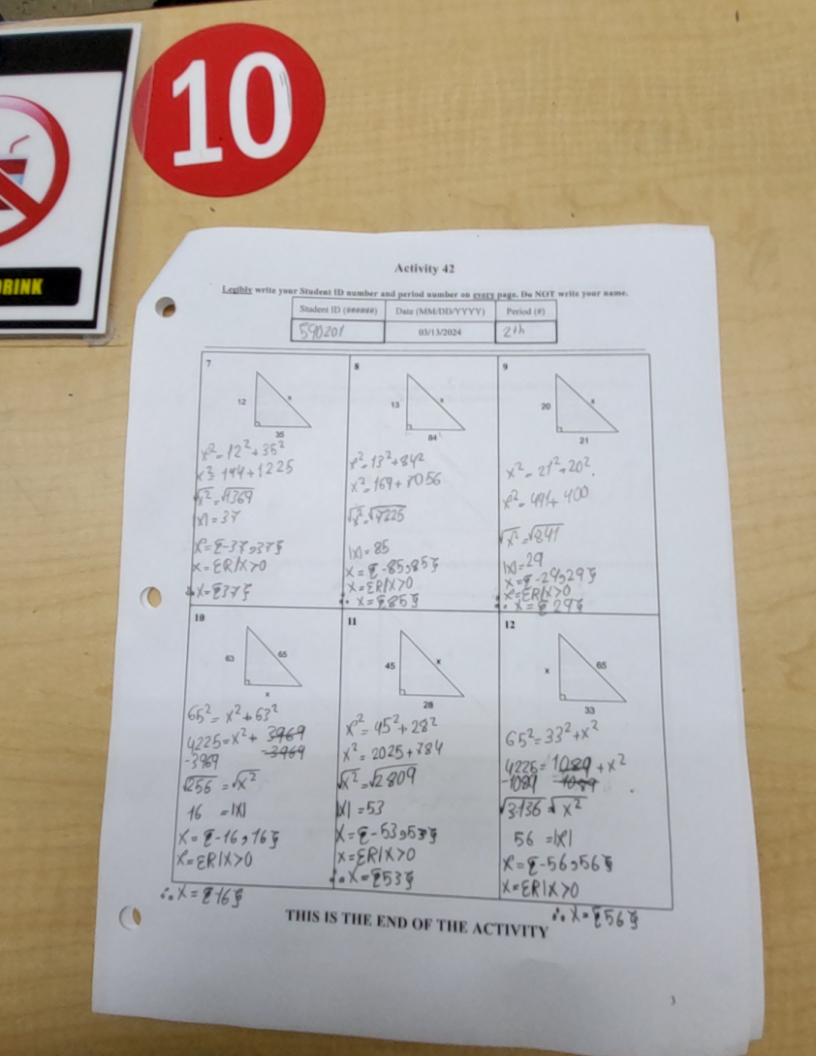 10
DRINK
Activity 42
Legibly write your Student ID number and period number on every page. Do NOT write your name.
Student ID (######) Date (MM/DD/YYYY) Period (#)
590201 03/13/2024 2th
7
12
x
35
x²=12²+35²
x²=144+1225
√x²=√1369
|x|=37
x={-37,37}
x={R|x>0
∴x={37}
8
13
x
84
x²=13²+84²
x²=169+7056
√x²=√7225
|x|=85
x={-85,85}
x={R|x>0
∴ x={85}
9
20
x
21
x²=21²+20²
x²=441+400
√x²=√841
|x|=29
x={-29,29}
x={R|x>0
∴ x={29}
10
63
65
x
65²=x²+63²
4225=x²+3969
-3969 -3969
√256=√x²
16 =|x|
x={-16,16}
x={R|x>0
∴x={16}
11
45
x
28
x²=45²+28²
x²=2025+784
√x²=√2809
|x|=53
x={-53,53}
x={R|x>0
∴x={53}
12
x
65
33
65²=33²+x²
4225=1089+x²
-1089 -1089
√3136=√x²
56=|x|
x={-56,56}
x={R|x>0
∴x={56}
THIS IS THE END OF THE ACTIVITY
3